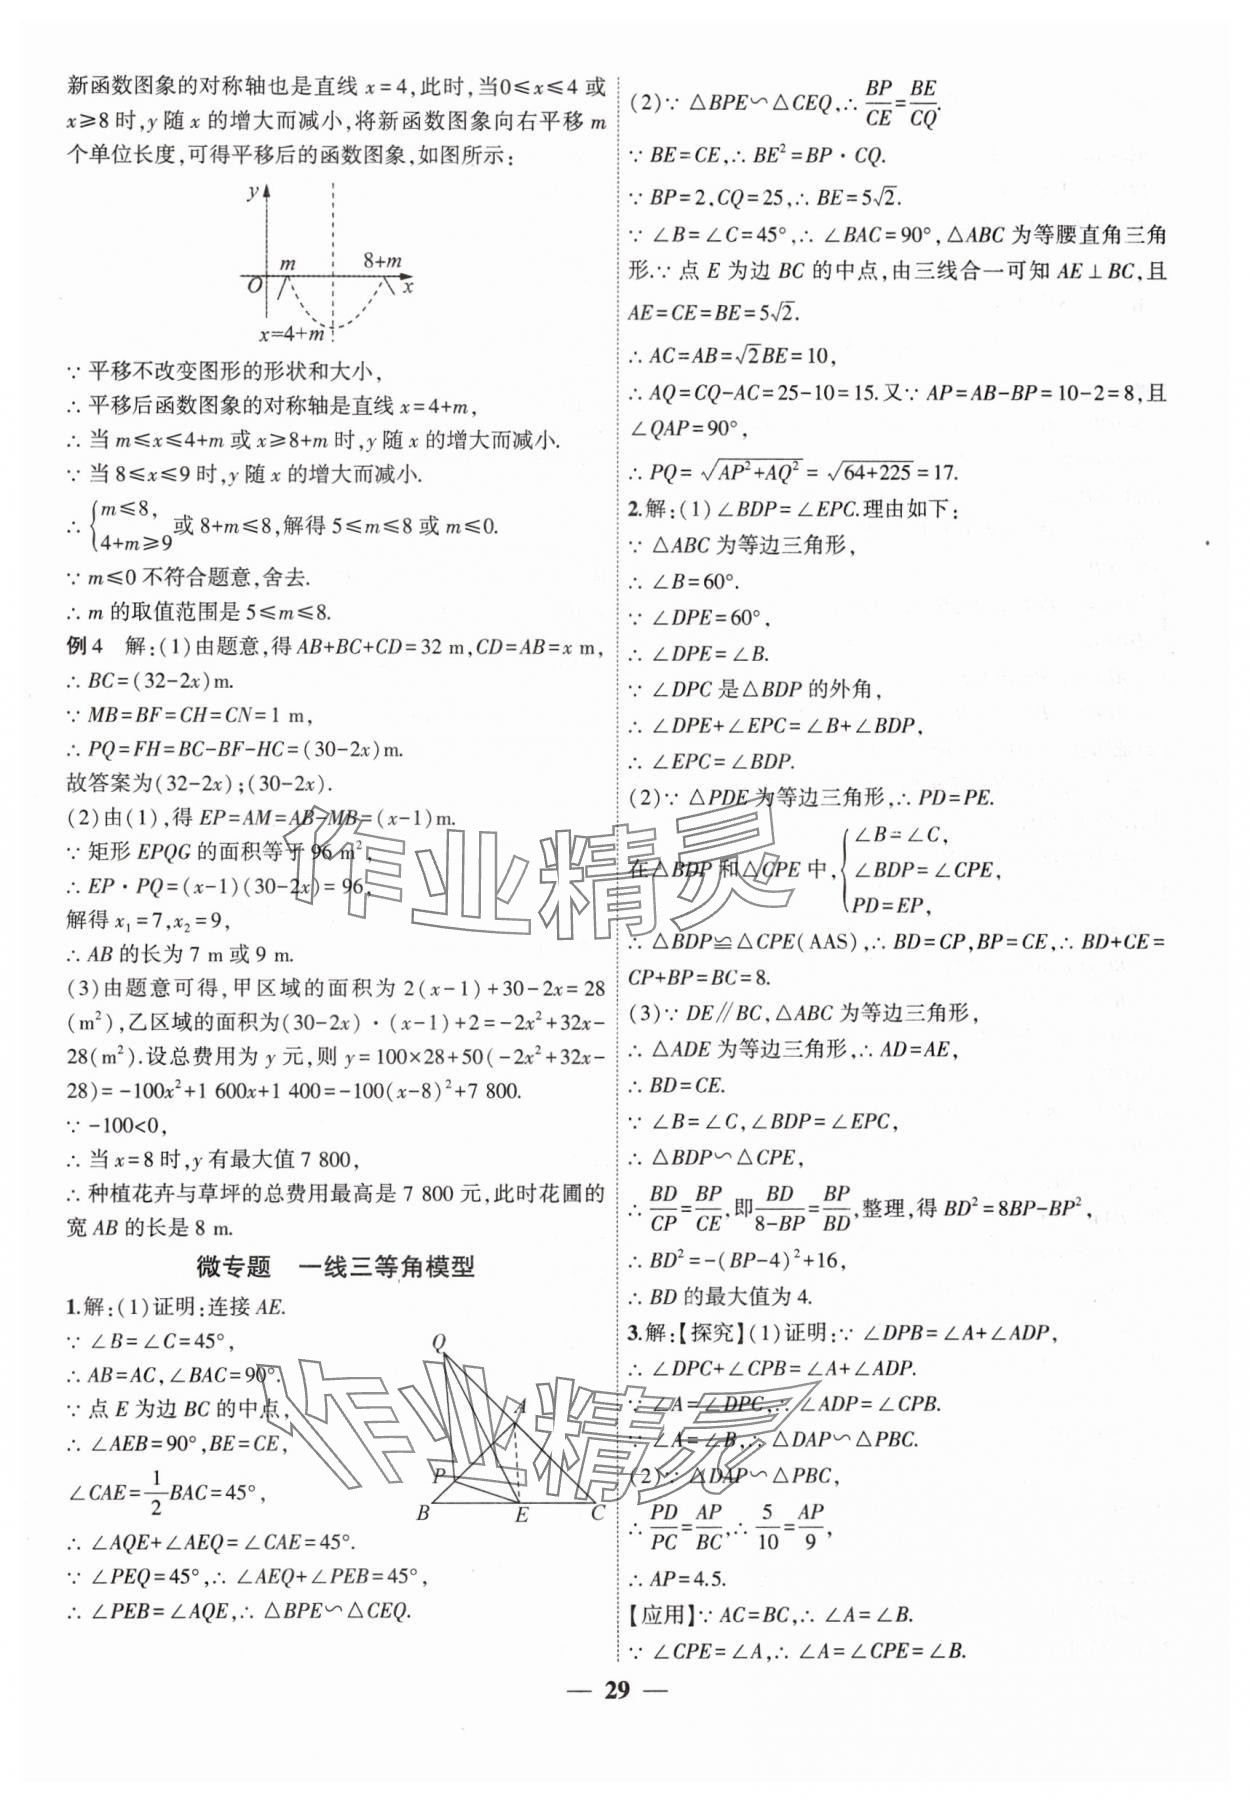 新函数图象的对称轴也是直线 x=4,此时,当0≤x≤4 或
x≥8 时,y 随 x 的增大而减小,将新函数图象向右平移 m
个单位长度,可得平移后的函数图象,如图所示:
y
m
8+m
O
x
x=4+m
∵ 平移不改变图形的形状和大小,
∴ 平移后函数图象的对称轴是直线 x=4+m,
∴ 当 m≤x≤4+m 或 x≥8+m 时,y 随 x 的增大而减小.
∵ 当 8≤x≤9 时,y 随 x 的增大而减小.
∴ {m≤8, 4+m≥9 或 8+m≤8,解得 5≤m≤8 或 m≤0.
∵ m≤0 不符合题意,舍去.
∴ m 的取值范围是 5≤m≤8.
例 4 解:(1)由题意,得 AB+BC+CD=32 m,CD=AB=x m,
∴ BC=(32-2x)m.
∵ MB=BF=CH=CN=1 m,
∴ PQ=FH=BC-BF-HC=(30-2x)m.
故答案为(32-2x);(30-2x).
(2)由(1),得 EP=AM=AB-MB=(x-1)m.
∵ 矩形 EPQG 的面积等于 96 m²,
∴ EP·PQ=(x-1)(30-2x)=96,
解得 x₁=7,x₂=9,
∴ AB 的长为 7 m 或 9 m.
(3)由题意可得,甲区域的面积为 2(x-1)+30-2x=28
(m²),乙区域的面积为(30-2x)·(x-1)+2=-2x²+32x-
28(m²).设总费用为 y 元,则 y=100×28+50(-2x²+32x-
28)=-100x²+1 600x+1 400=-100(x-8)²+7 800.
∵ -100<0,
∴ 当 x=8 时,y 有最大值 7 800,
∴ 种植花卉与草坪的总费用最高是 7 800 元,此时花圃的
宽 AB 的长是 8 m.
微专题 一线三等角模型
1.解:(1)证明:连接 AE.
∵ ∠B=∠C=45°,
∴ AB=AC,∠BAC=90°.
∵ 点 E 为边 BC 的中点,
∴ ∠AEB=90°,BE=CE,
∠CAE=1/2∠BAC=45°,
∴ ∠AQE+∠AEQ=∠CAE=45°.
∵ ∠PEQ=45°,∴ ∠AEQ+∠PEB=45°,
∴ ∠PEB=∠AQE,∴ △BPE∽△CEQ.
Q
A
P
B
E
C
(2)∵ △BPE∽△CEQ,∴ BP/CE=BE/CQ.
∵ BE=CE,∴ BE²=BP·CQ.
∵ BP=2,CQ=25,∴ BE=5√2.
∵ ∠B=∠C=45°,∴ ∠BAC=90°,△ABC 为等腰直角三角
形.∵ 点 E 为边 BC 的中点,由三线合一可知 AE⊥BC,且
AE=CE=BE=5√2.
∴ AC=AB=√2BE=10,
∴ AQ=CQ-AC=25-10=15.又∵ AP=AB-BP=10-2=8,且
∠QAP=90°,
∴ PQ=√(AP²+AQ²)=√(64+225)=17.
2.解:(1)∠BDP=∠EPC.理由如下:
∵ △ABC 为等边三角形,
∴ ∠B=60°.
∵ ∠DPE=60°,
∴ ∠DPE=∠B.
∵ ∠DPC 是△BDP 的外角,
∴ ∠DPE+∠EPC=∠B+∠BDP,
∴ ∠EPC=∠BDP.
(2)∵ △PDE 为等边三角形,∴ PD=PE.
在△BDP 和△CPE 中, {∠B=∠C, ∠BDP=∠CPE, PD=EP,
∴ △BDP≌△CPE(AAS),∴ BD=CP,BP=CE,∴ BD+CE=
CP+BP=BC=8.
(3)∵ DE∥BC,△ABC 为等边三角形,
∴ △ADE 为等边三角形,∴ AD=AE,
∴ BD=CE.
∵ ∠B=∠C,∠BDP=∠EPC,
∴ △BDP∽△CPE,
∴ BD/CP=BP/CE,即BD/(8-BP)=BP/BD,整理,得 BD²=8BP-BP²,
∴ BD²=-(BP-4)²+16,
∴ BD 的最大值为 4.
3.解:【探究】(1)证明:∵ ∠DPB=∠A+∠ADP,
∴ ∠DPC+∠CPB=∠A+∠ADP.
∵ ∠A=∠DPC,∴ ∠ADP=∠CPB.
∵ ∠A=∠B,∴ △DAP∽△PBC.
(2)∵ △DAP∽△PBC,
∴ PD/PC=AP/BC,∴ 5/10=AP/9,
∴ AP=4.5.
【应用】∵ AC=BC,∴ ∠A=∠B.
∵ ∠CPE=∠A,∴ ∠A=∠CPE=∠B.
— 29 —
作业精灵
作业精灵